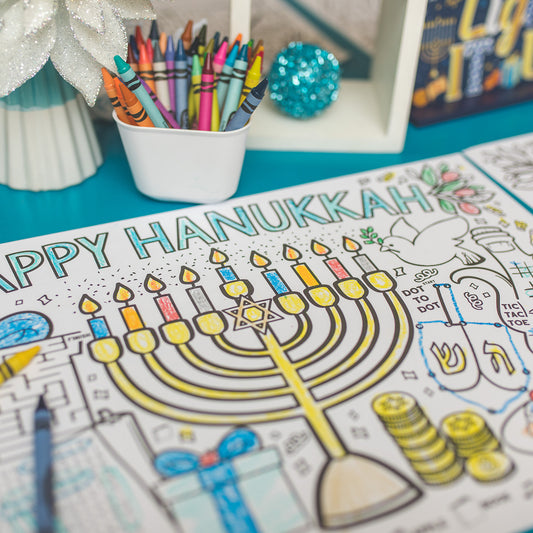 APPY HANUKKAH
DOT
TO DOT
START
TIC
TAC
TOE
ש
ה